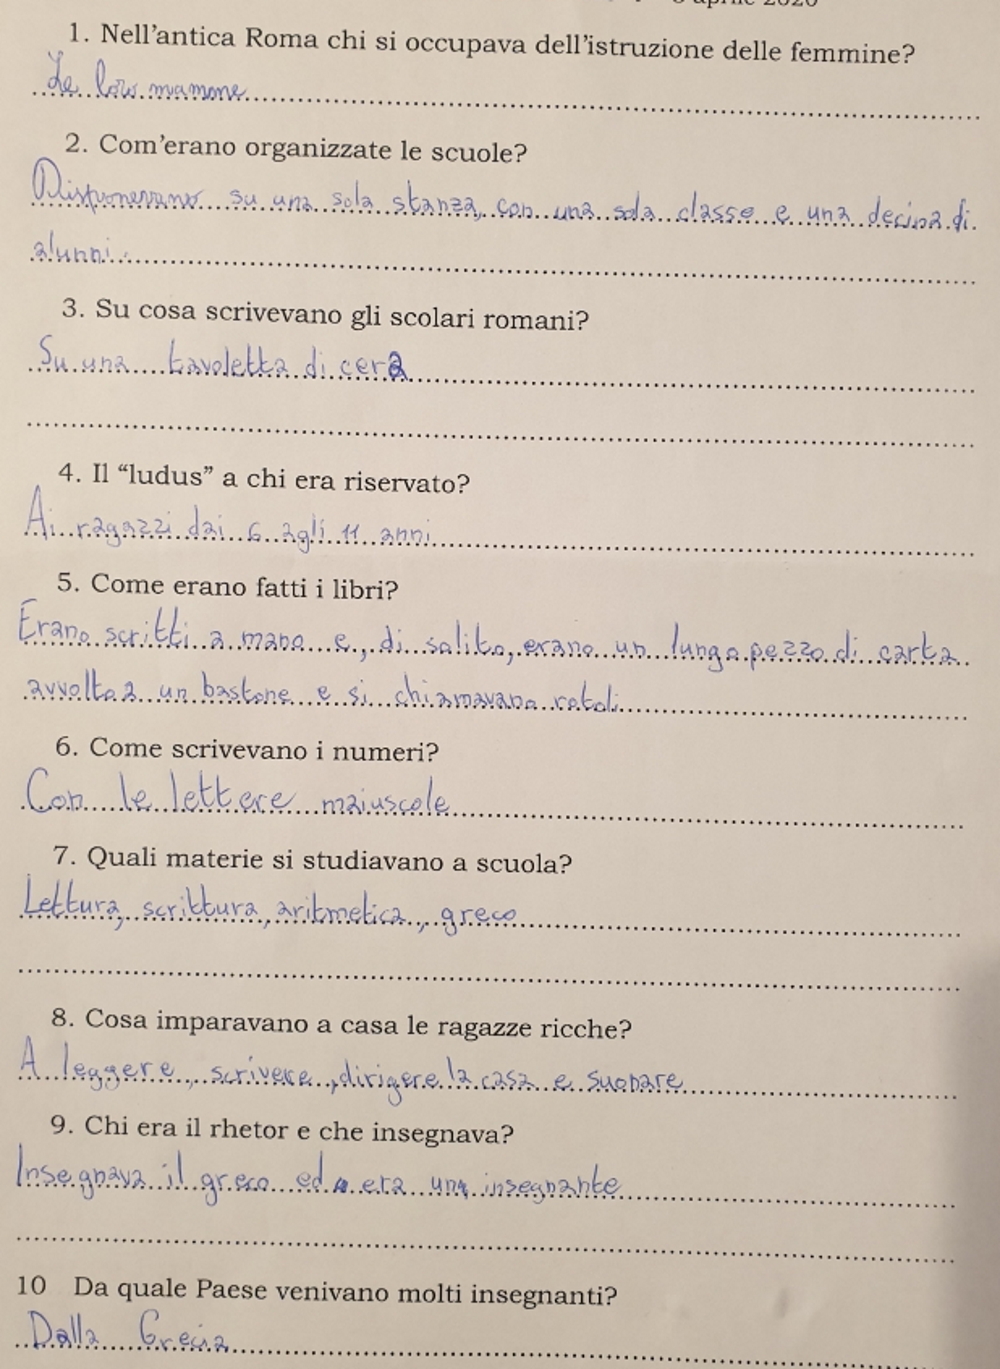 aprile 2020
1. Nell'antica Roma chi si occupava dell'istruzione delle femmine?
Le loro mamme
2. Com'erano organizzate le scuole?
Disponevano su una sola stanza, con una sola classe e una decina di
alunni.
3. Su cosa scrivevano gli scolari romani?
Su una tavoletta di cera
4. Il “ludus” a chi era riservato?
Ai ragazzi dai 6 agli 11 anni
5. Come erano fatti i libri?
Erano scritti a mano e, di solito, erano un lungo pezzo di carta
avvolto a un bastone e si chiamavano rotoli
6. Come scrivevano i numeri?
Con le lettere maiuscole
7. Quali materie si studiavano a scuola?
Lettura, scrittura, aritmetica, greco
8. Cosa imparavano a casa le ragazze ricche?
A leggere, scrivere, dirigere la casa e suonare
9. Chi era il rhetor e che insegnava?
Insegnava il greco ed era un insegnante
10 Da quale Paese venivano molti insegnanti?
Dalla Grecia